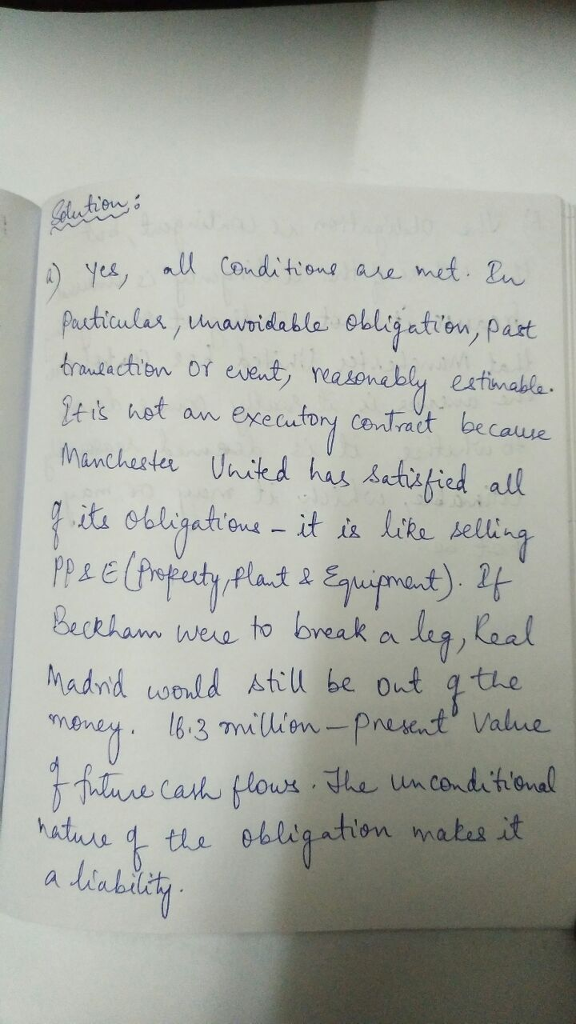 Solution:
a) Yes, all Conditions are met. In
Particular, unavoidable obligation, past
transaction or event, reasonably estimable.
It is not an executory contract because
Manchester United has satisfied all
of its obligations – it is like selling
PP & E (Property, Plant & Equipment). If
Beckham were to break a leg, Real
Madrid would still be out of the
money. 18.3 million – Present Value
of future cash flows. The unconditional
nature of the obligation makes it
a liability.